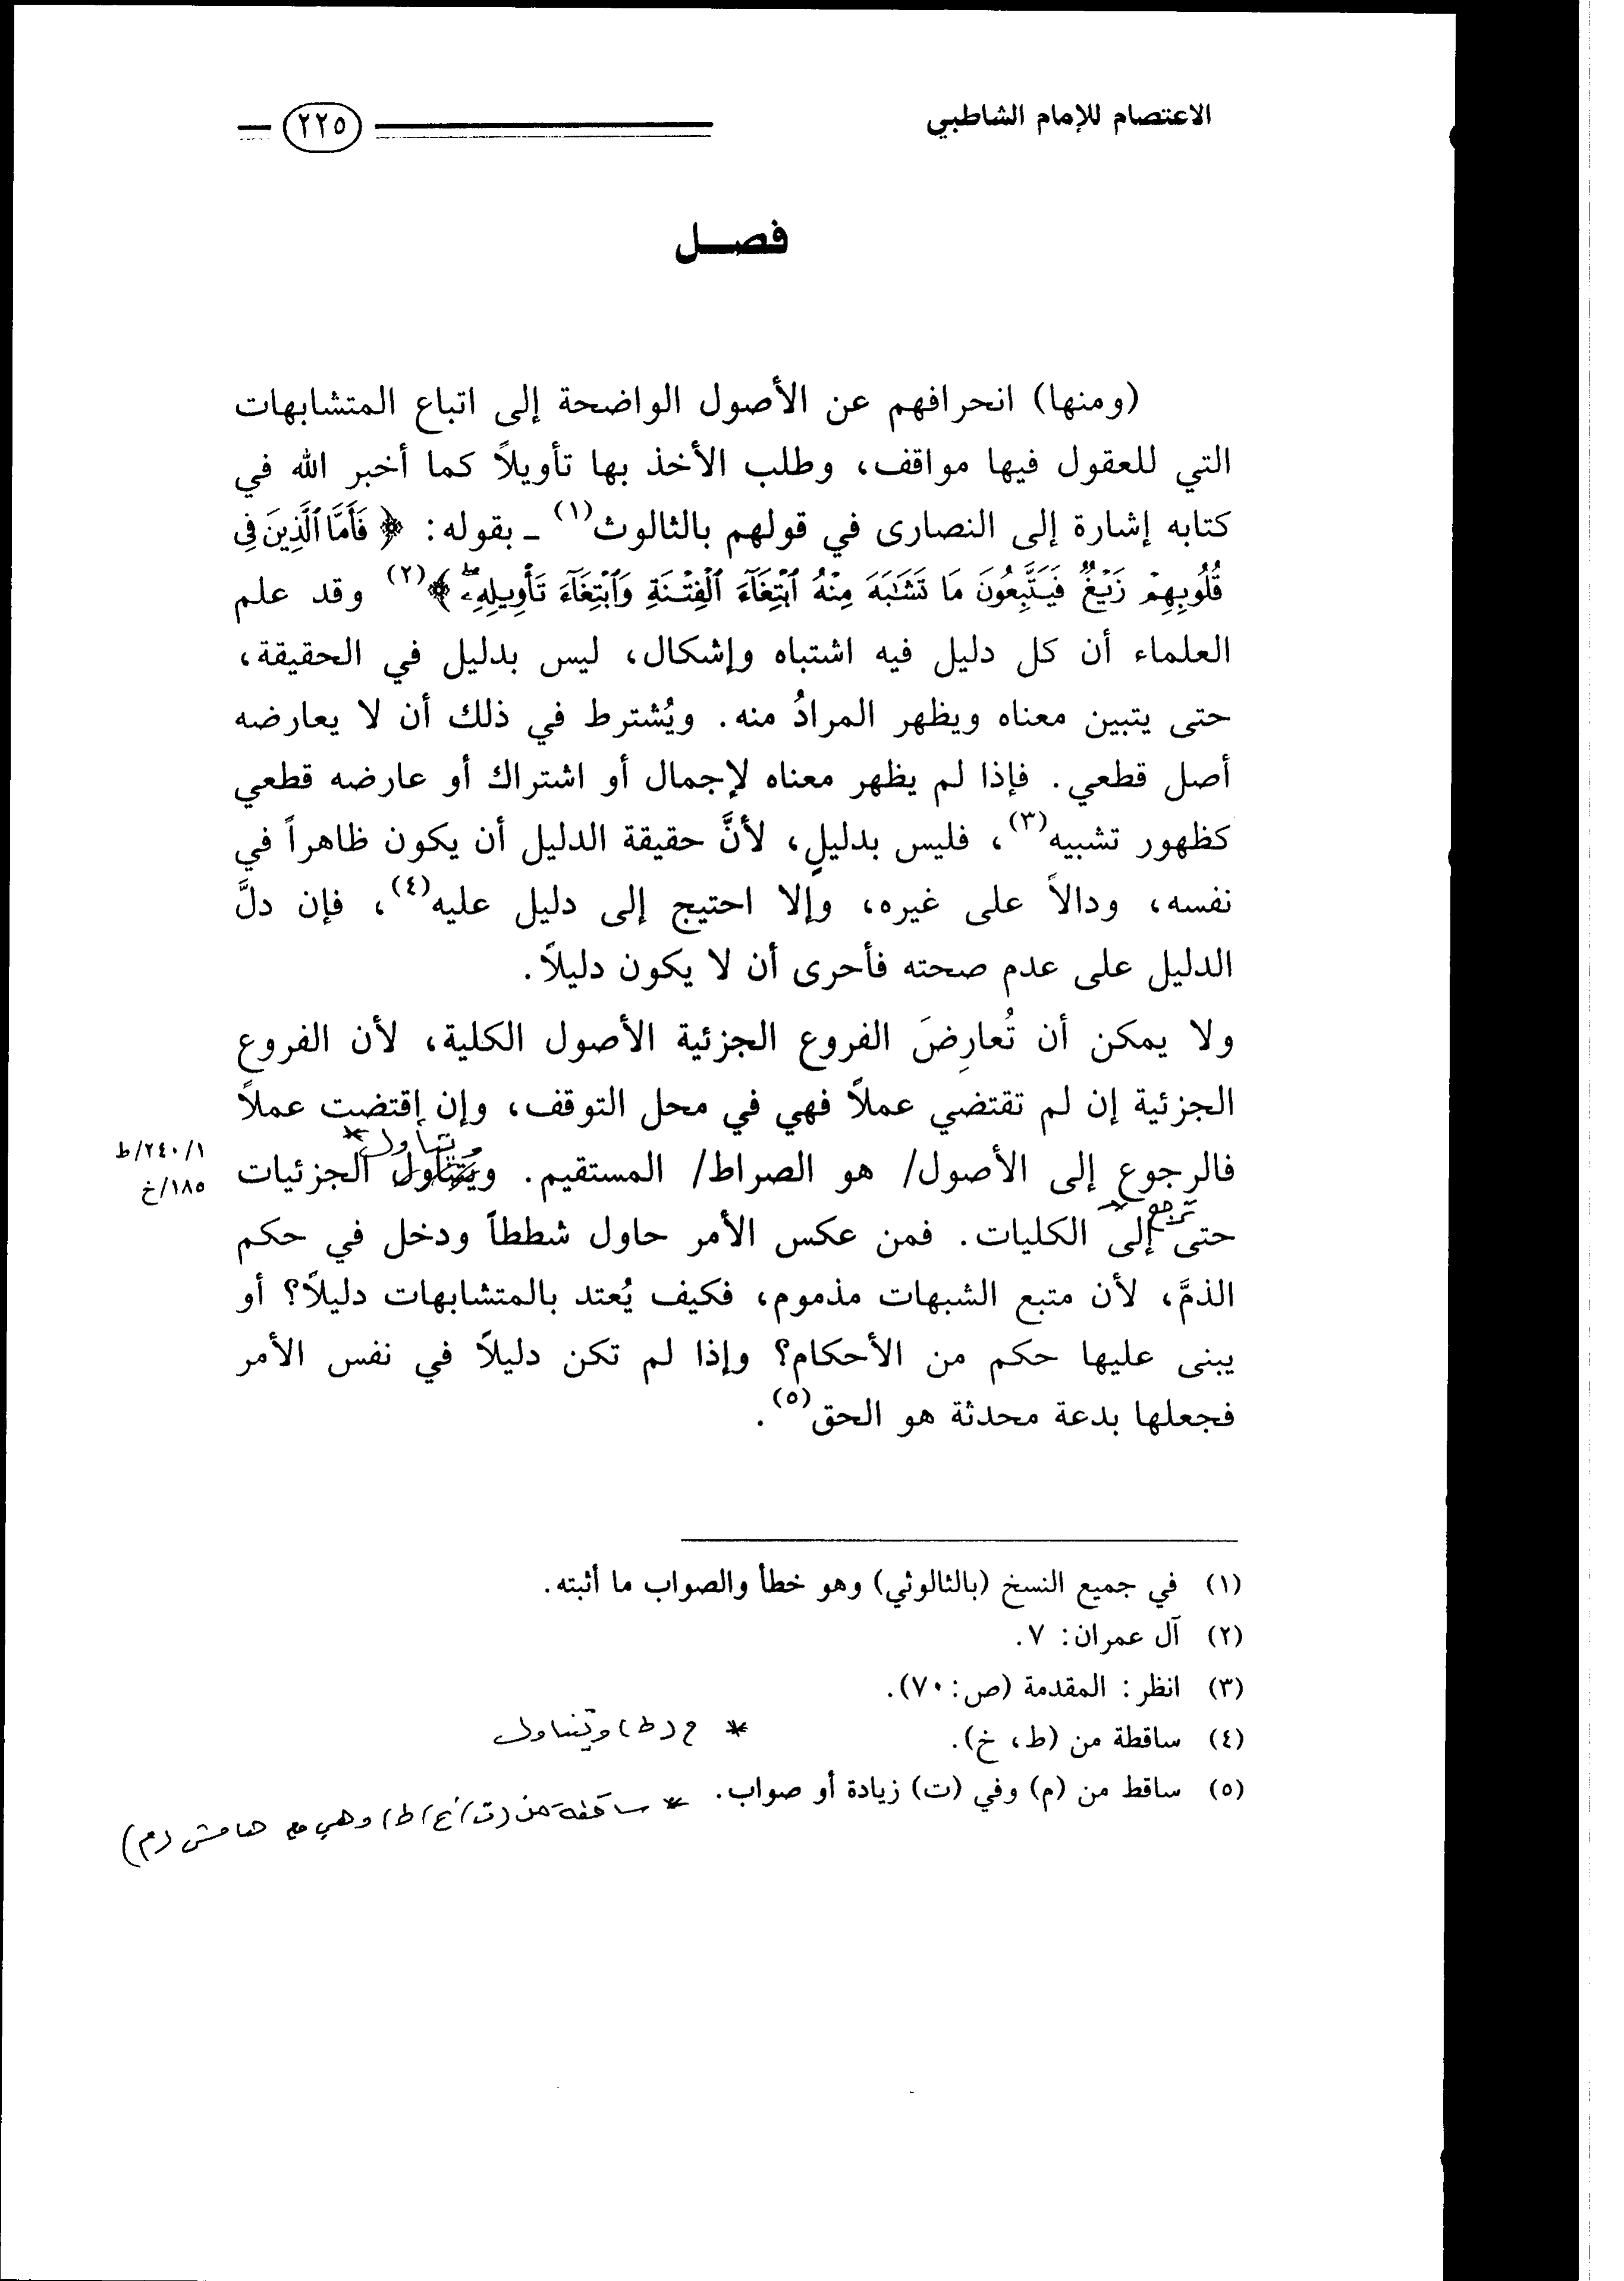 الاعتصام للإمام الشاطبي
٢٢٥
فصـــل
(ومنها) انحرافهم عن الأصول الواضحة إلى اتباع المتشابهات
التي للعقول فيها مواقف، وطلب الأخذ بها تأويلاً كما أخبر الله في
كتابه إشارة إلى النصارى في قولهم بالثالوث(١) ـ بقوله: ﴿فَأَمَّا ٱلَّذِينَ فِى
قُلُوبِهِمۡ زَيۡغٌ فَيَتَّبِعُونَ مَا تَشَٰبَهَ مِنۡهُ ٱبۡتِغَآءَ ٱلۡفِتۡنَةِ وَٱبۡتِغَآءَ تَأۡوِيلِهِۦۖ﴾(٢) وقد علم
العلماء أن كل دليل فيه اشتباه وإشكال، ليس بدليل في الحقيقة،
حتى يتبين معناه ويظهر المرادُ منه. ويُشترط في ذلك أن لا يعارضه
أصل قطعي. فإذا لم يظهر معناه لإجمال أو اشتراك أو عارضه قطعي
كظهور تشبيه(٣)، فليس بدليلٍ، لأنَّ حقيقة الدليل أن يكون ظاهراً في
نفسه، ودالاً على غيره، وإلا احتيج إلى دليل عليه(٤)، فإن دلَّ
الدليل على عدم صحته فأحرى أن لا يكون دليلاً.
ولا يمكن أن تُعارِضَ الفروع الجزئية الأصول الكلية، لأن الفروع
الجزئية إن لم تقتضي عملاً فهي في محل التوقف، وإن اقتضت عملاً
وتتأول*
فالرجوع إلى الأصول/ هو الصراط/ المستقيم. ويتناول الجزئيات
١/٢٤٠/ط
١٨٥/خ
ترجع*
حتى إلى الكليات. فمن عكس الأمر حاول شططاً ودخل في حكم
الذمَّ، لأن متبع الشبهات مذموم، فكيف يُعتد بالمتشابهات دليلاً؟ أو
يبنى عليها حكم من الأحكام؟ وإذا لم تكن دليلاً في نفس الأمر
فجعلها بدعة محدثة هو الحق(٥).
(١) في جميع النسخ (بالثالوثي) وهو خطأ والصواب ما أثبته.
(٢) آل عمران: ٧.
(٣) انظر: المقدمة (ص: ٧٠).
(٤) ساقطة من (ط، خ).
* (ط) ويتناول
(٥) ساقط من (م) وفي (ت) زيادة أو صواب.
* ساقطة من (ت) (خ) (ط) وهي هامش (م)